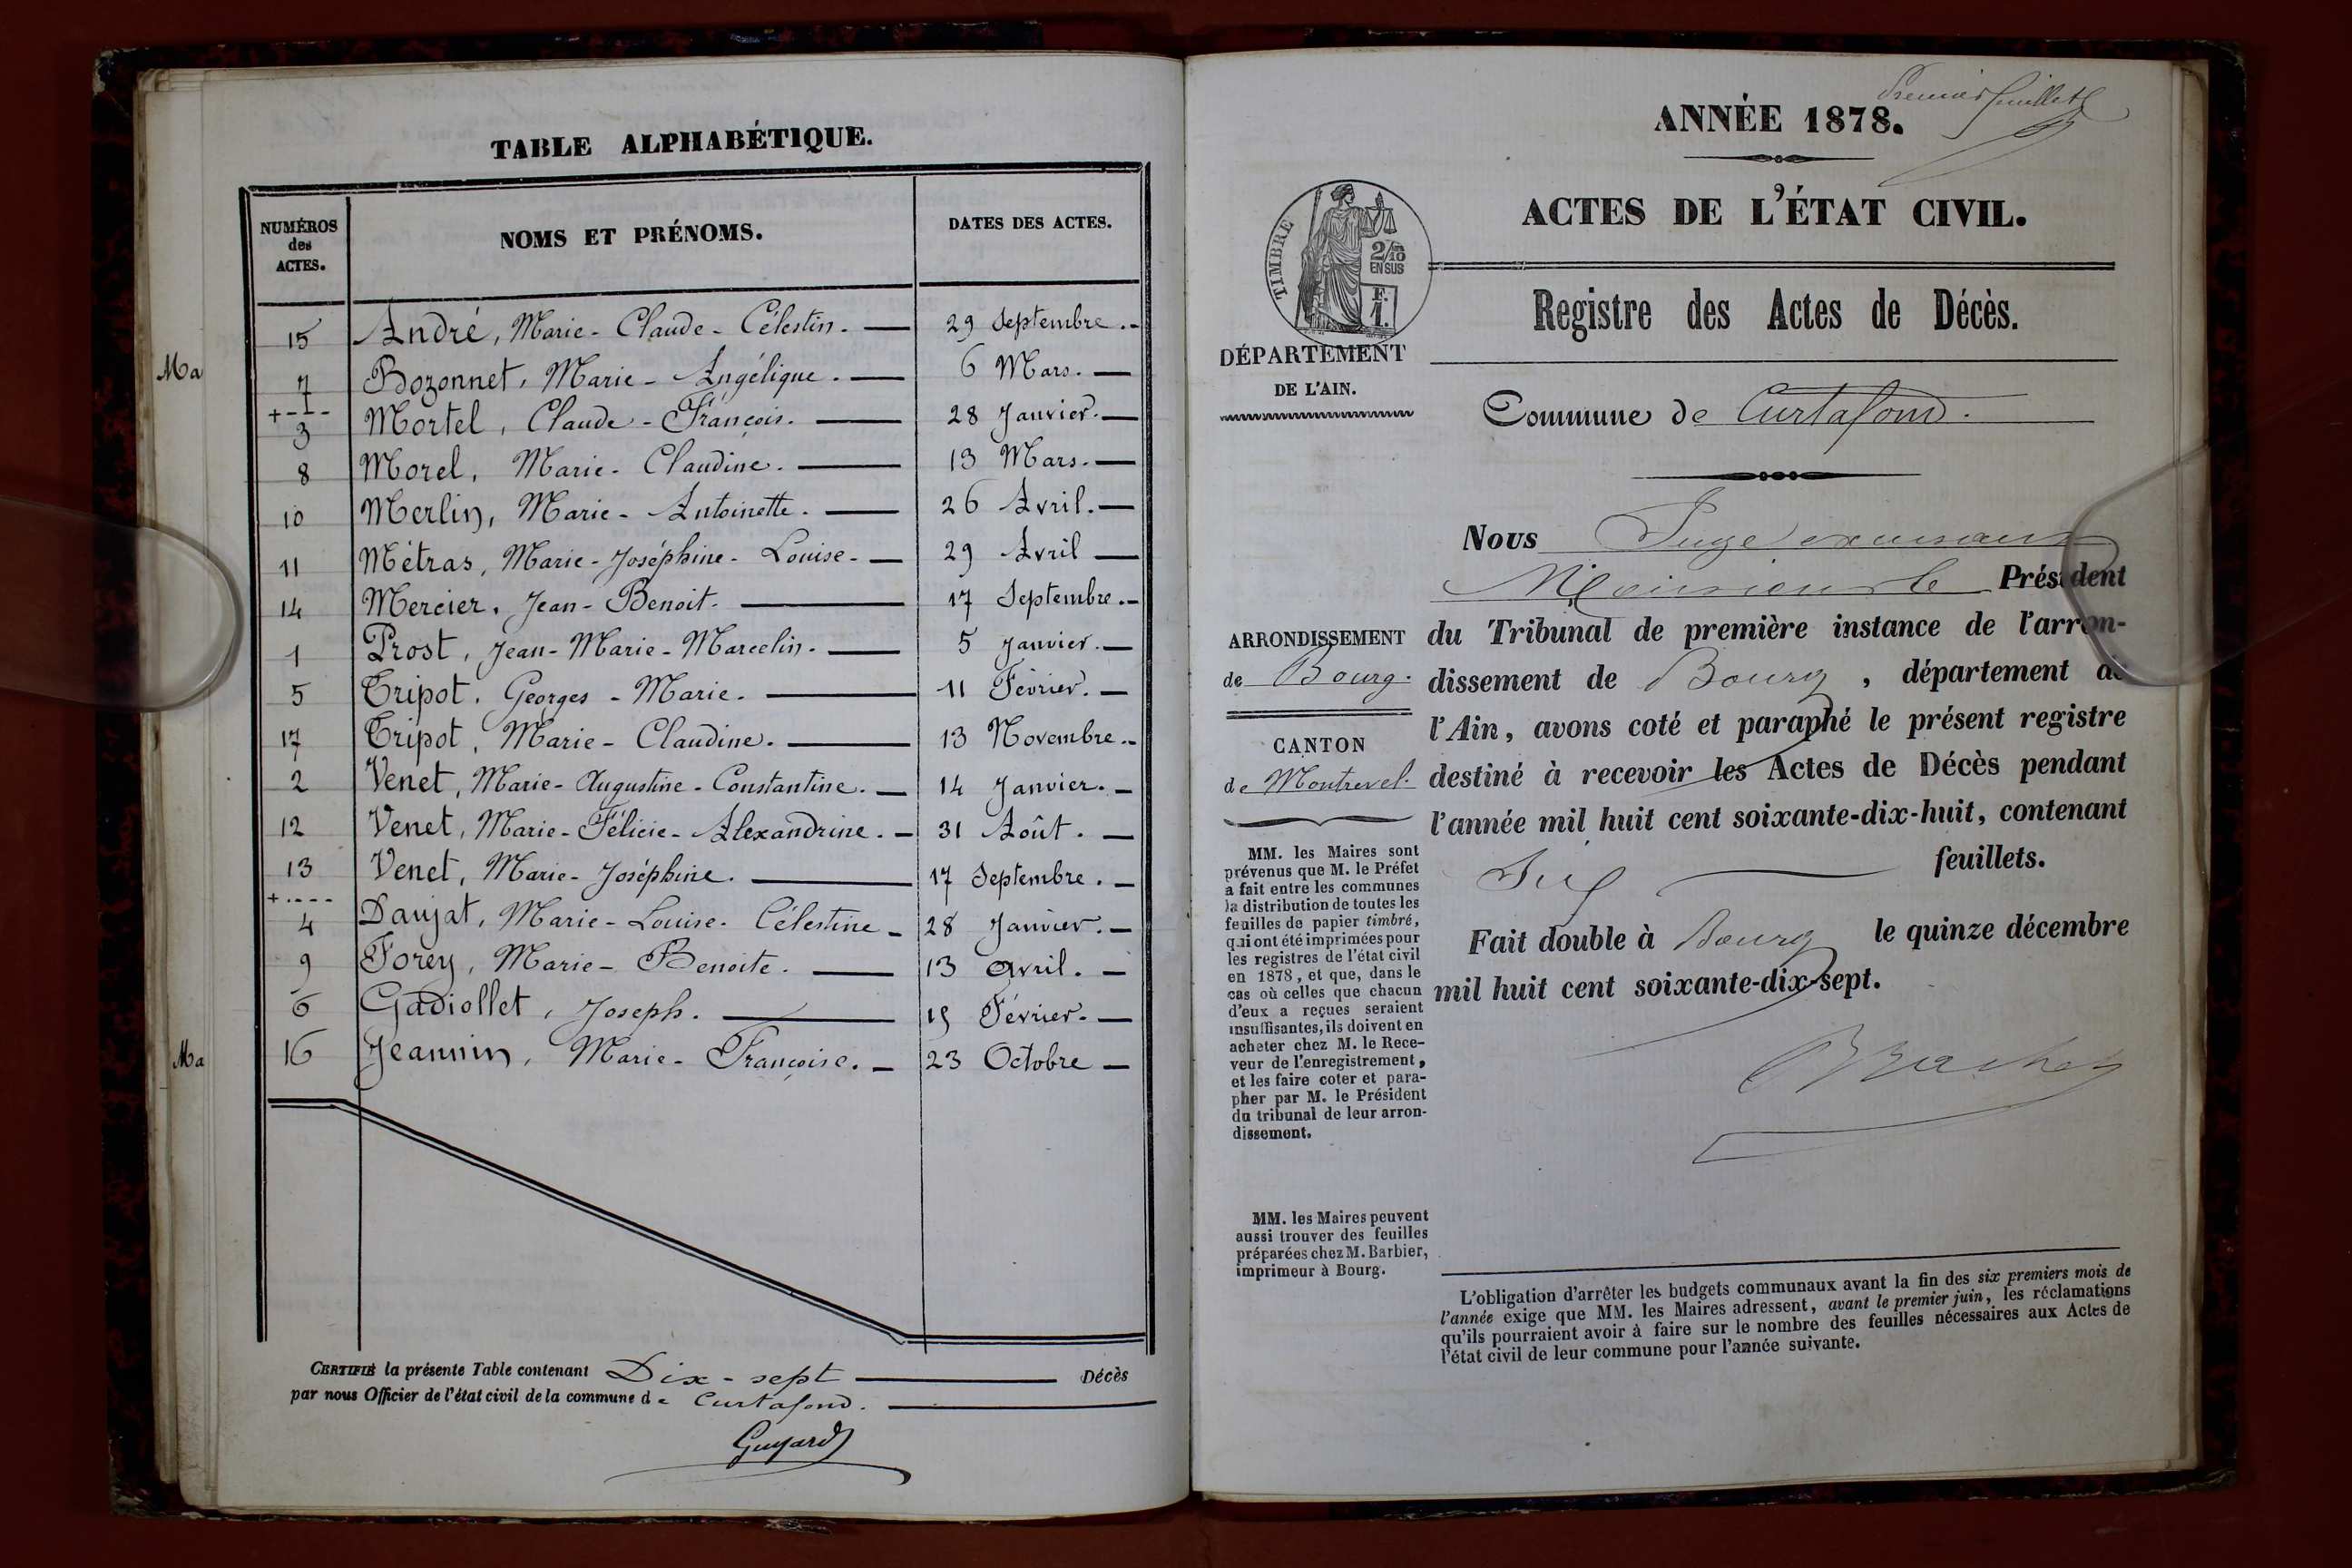 Ma
Ma
TABLE ALPHABÉTIQUE.
NUMÉROS
des
ACTES.
NOMS ET PRÉNOMS.
DATES DES ACTES.
15 André, Marie-Claude-Célestin. 29 Septembre.
7 Bozonnet, Marie-Angélique. 6 Mars.
3 Mortel, Claude-François. 28 Janvier.
8 Morel, Marie-Claudine. 13 Mars.
10 Merlin, Marie-Antoinette. 26 Avril.
11 Métras, Marie-Joséphine-Louise. 29 Avril
14 Mercier, Jean-Benoit. 17 Septembre.
1 Prost, Jean-Marie-Marcelin. 5 Janvier.
5 Tripot, Georges-Marie. 11 Février.
17 Tripot, Marie-Claudine. 13 Novembre.
2 Venet, Marie-Augustine-Constantine. 14 Janvier.
12 Venet, Marie-Félicie-Alexandrine. 31 Août.
13 Venet, Marie-Joséphine. 17 Septembre.
4 Daujat, Marie-Louise-Célestine 28 Janvier.
9 Forey, Marie-Benoite. 13 Avril.
6 Gadiollet, Joseph. Février.
16 Jeannin, Marie-Françoise. 23 Octobre
CERTIFIÉ la présente Table contenant Dix-sept Décès
par nous Officier de l'état civil de la commune de Curtafond.
Guyard
Premier feuillet
ANNÉE 1878.
ACTES DE L'ÉTAT CIVIL.
TIMBRE
2/10
EN SUS
F.
1.
DÉPARTEMENT
DE L'AIN.
Registre des Actes de Décès.
Commune de Curtafond.
Nous Juge
Monsieur le Président
du Tribunal de première instance de l'arron-
dissement de Bourg, département de
l'Ain, avons coté et paraphé le présent registre
destiné à recevoir les Actes de Décès pendant
l'année mil huit cent soixante-dix-huit, contenant
feuillets.
Fait double à Bourg le quinze décembre
mil huit cent soixante-dix-sept.
ARRONDISSEMENT
de Bourg.
CANTON
de Montrevel.
MM. les Maires sont
prévenus que M. le Préfet
a fait entre les communes
la distribution de toutes les
feuilles de papier timbré,
qui ont été imprimées pour
les registres de l'état civil
en 1878, et que, dans le
cas où celles que chacun
d'eux a reçues seraient
insuffisantes, ils doivent en
acheter chez M. le Rece-
veur de l'enregistrement,
et les faire coter et para-
pher par M. le Président
du tribunal de leur arron-
dissement.
MM. les Maires peuvent
aussi trouver des feuilles
préparées chez M. Barbier,
imprimeur à Bourg.
L'obligation d'arrêter les budgets communaux avant la fin des six premiers mois de
l'année exige que MM. les Maires adressent, avant le premier juin, les réclamations
qu'ils pourraient avoir à faire sur le nombre des feuilles nécessaires aux Actes de
l'état civil de leur commune pour l'année suivante.